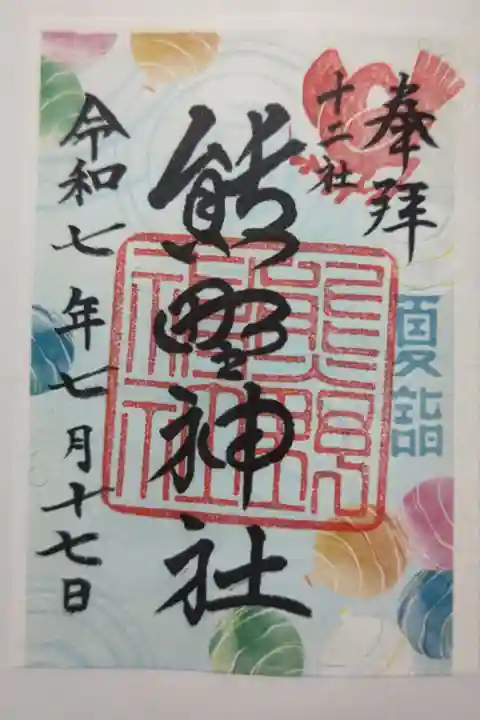 奉拝
十二社
夏詣
熊野神社
熊野神社
令和七年七月十七日